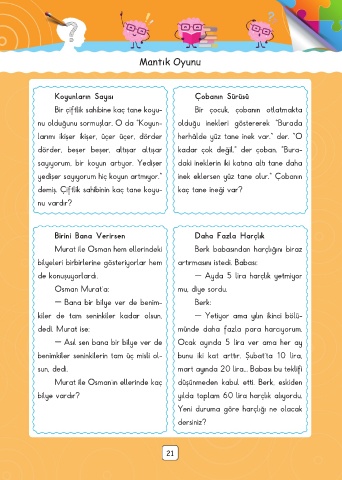 Mantık Oyunu
Koyunların Sayısı
Bir çiftlik sahibine kaç tane koyu-
nu olduğunu sormuşlar. O da "Koyun-
larımı ikişer ikişer, üçer üçer, dörder
dörder, beşer beşer, altışar altışar
sayıyorum, bir koyun artıyor. Yedişer
yedişer sayıyorum hiç koyun artmıyor."
demiş. Çiftlik sahibinin kaç tane koyu-
nu vardır?
Çobanın Sürüsü
Bir çocuk, çobanın otlatmakta
olduğu inekleri göstererek "Burada
herhâlde yüz tane inek var." der. "O
kadar çok değil," der çoban, "Bura-
daki ineklerin iki katına altı tane daha
inek eklersen yüz tane olur." Çobanın
kaç tane ineği var?
Birini Bana Verirsen
Murat ile Osman hem ellerindeki
bilyeleri birbirlerine gösteriyorlar hem
de konuşuyorlardı.
Osman Murat'a:
— Bana bir bilye ver de benim-
kiler de tam seninkiler kadar olsun,
dedi. Murat ise:
— Asıl sen bana bir bilye ver de
benimkiler seninkilerin tam üç misli ol-
sun, dedi.
Murat ile Osman'ın ellerinde kaç
bilye vardır?
Daha Fazla Harçlık
Berk babasından harçlığını biraz
artırmasını istedi. Babası:
— Ayda 5 lira harçlık yetmiyor
mu, diye sordu.
Berk:
— Yetiyor ama yılın ikinci bölü-
münde daha fazla para harcıyorum.
Ocak ayında 5 lira ver ama her ay
bunu iki kat arttır. Şubat'ta 10 lira,
mart ayında 20 lira... Babası bu teklifi
düşünmeden kabul etti. Berk, eskiden
yılda toplam 60 lira harçlık alıyordu.
Yeni duruma göre harçlığı ne olacak
dersiniz?
21